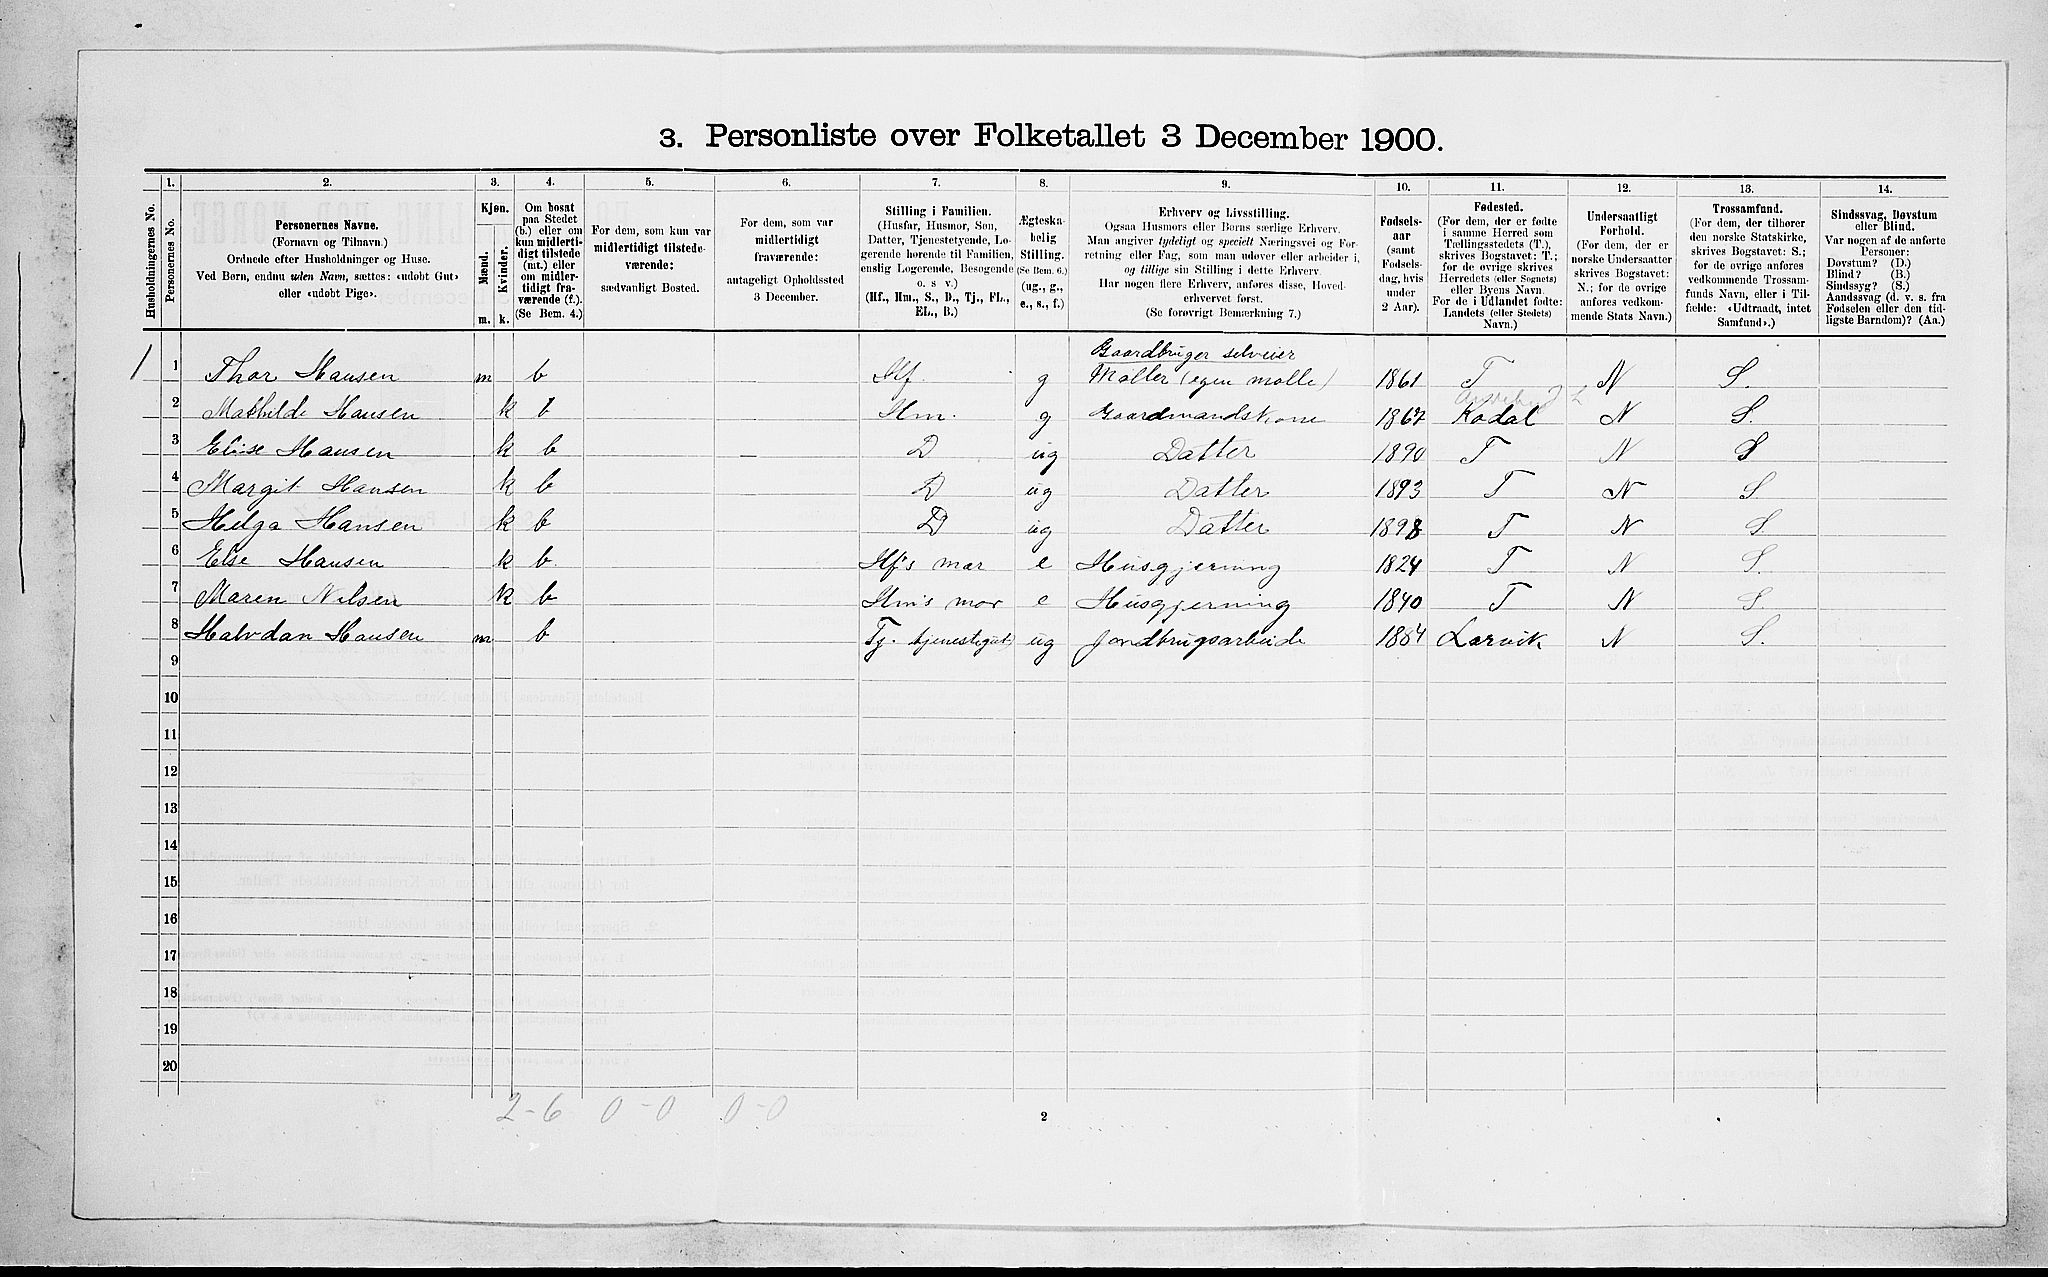 3. Personliste over Folketallet 3 December 1900.
Husholdningernes No.
1.
Personernes No.
2.
Personernes Navne.
(Fornavn og Tilnavn.)
Ordnede efter Husholdninger og Huse.
Ved Børn, endnu uden Navn, sættes: «udøbt Gut»
eller «udøbt Pige».
3.
Kjøn.
Mænd.
Kvinder.
m. k.
4.
Om bosat
paa Stedet
(b.) eller om
kun midlerti-
digt tilstede
(mt.) eller
om midler-
tidigt fra-
værende (f.).
(Se Bem. 4.)
5.
For dem, som kun var
midlertidigt tilstede-
værende:
sædvanligt Bosted.
6.
For dem, som var
midlertidigt
fraværende:
antageligt Opholdssted
3 December.
7.
Stilling i Familien.
(Husfar, Husmor, Søn,
Datter, Tjenestetyende, Lo-
gerende hørende til Familien,
enslig Logerende, Besøgende
o. s v.)
(Hf., Hm., S., D., Tj., FL.,
EL., B.)
8.
Ægteska-
belig
Stilling.
(Se Bem. 6.)
(ug., g.,
e., s., f.)
9.
Erhverv og Livsstilling.
Ogsaa Husmors eller Børns særlige Erhverv.
Man angiver tydeligt og specielt Næringsvei og For-
retning eller Fag, som man udøver eller arbeider i,
og tillige sin Stilling i dette Erhverv.
Har nogen flere Erhverv, anføres disse, Hoved-
erhvervet først.
(Se forøvrigt Bemærkning 7.)
10.
Fødsels-
aar
(samt
Fødsels-
dag, hvis
under
2 Aar).
11.
Fødested.
(For dem, der er fødte
i samme Herred som
Tællingsstedets (T.),
skrives Bogstavet: T.;
for de øvrige skrives
Herredets (eller Sognets)
eller Byens Navn.
For de i Udlandet fødte:
Landets (eller Stedets)
Navn.)
12.
Undersaatligt
Forhold.
(For dem, der er
norske Undersaatter
skrives Bogstavet:
N.; for de øvrige
anføres vedkom-
mende Stats Navn.)
13.
Trossamfund.
(For dem, der tilhører
den norske Statskirke,
skrives Bogstavet: S.;
for de øvrige anføres
vedkommende Trossam-
funds Navn, eller i Til-
fælde: «Udtraadt, intet
Samfund».)
14.
Sindssvag, Døvstum
eller Blind.
Var nogen af de anførte
Personer:
Døvstum? (D.)
Blind? (B.)
Sindssyg? (S.)
Aandssvag (d. v. s. fra
Fødselen eller den tid-
ligste Barndom)? (Aa.)
Gaardbruger selveier
1 1 Thor Hansen m b Hf. g Møller (egen mølle) 1861 T N S.
2 Mathilde Hansen k b Hm. g Gaardmandskone 1867 Kodal N S.
3 Elise Hansen k b — D ug Datter 1890 T N S
4 Margit Hansen k b D ug Datter 1893 T N S
5 Helga Hansen k b D ug Datter 1898 T N S
6 Else Hansen k b. Hf's mor e Husgjerning 1824 T N S.
7 Maren Nilsen k b Hm's mor e Husgjerning 1840 T N S.
8 Halvdan Hansen m b Tj. tjenestegut) ug Jordbrugsarbeide 1884 Larvik N S.
9
10
11
12
13
14
15
16
17
18
19
20
2-6 0-0 0-0
2